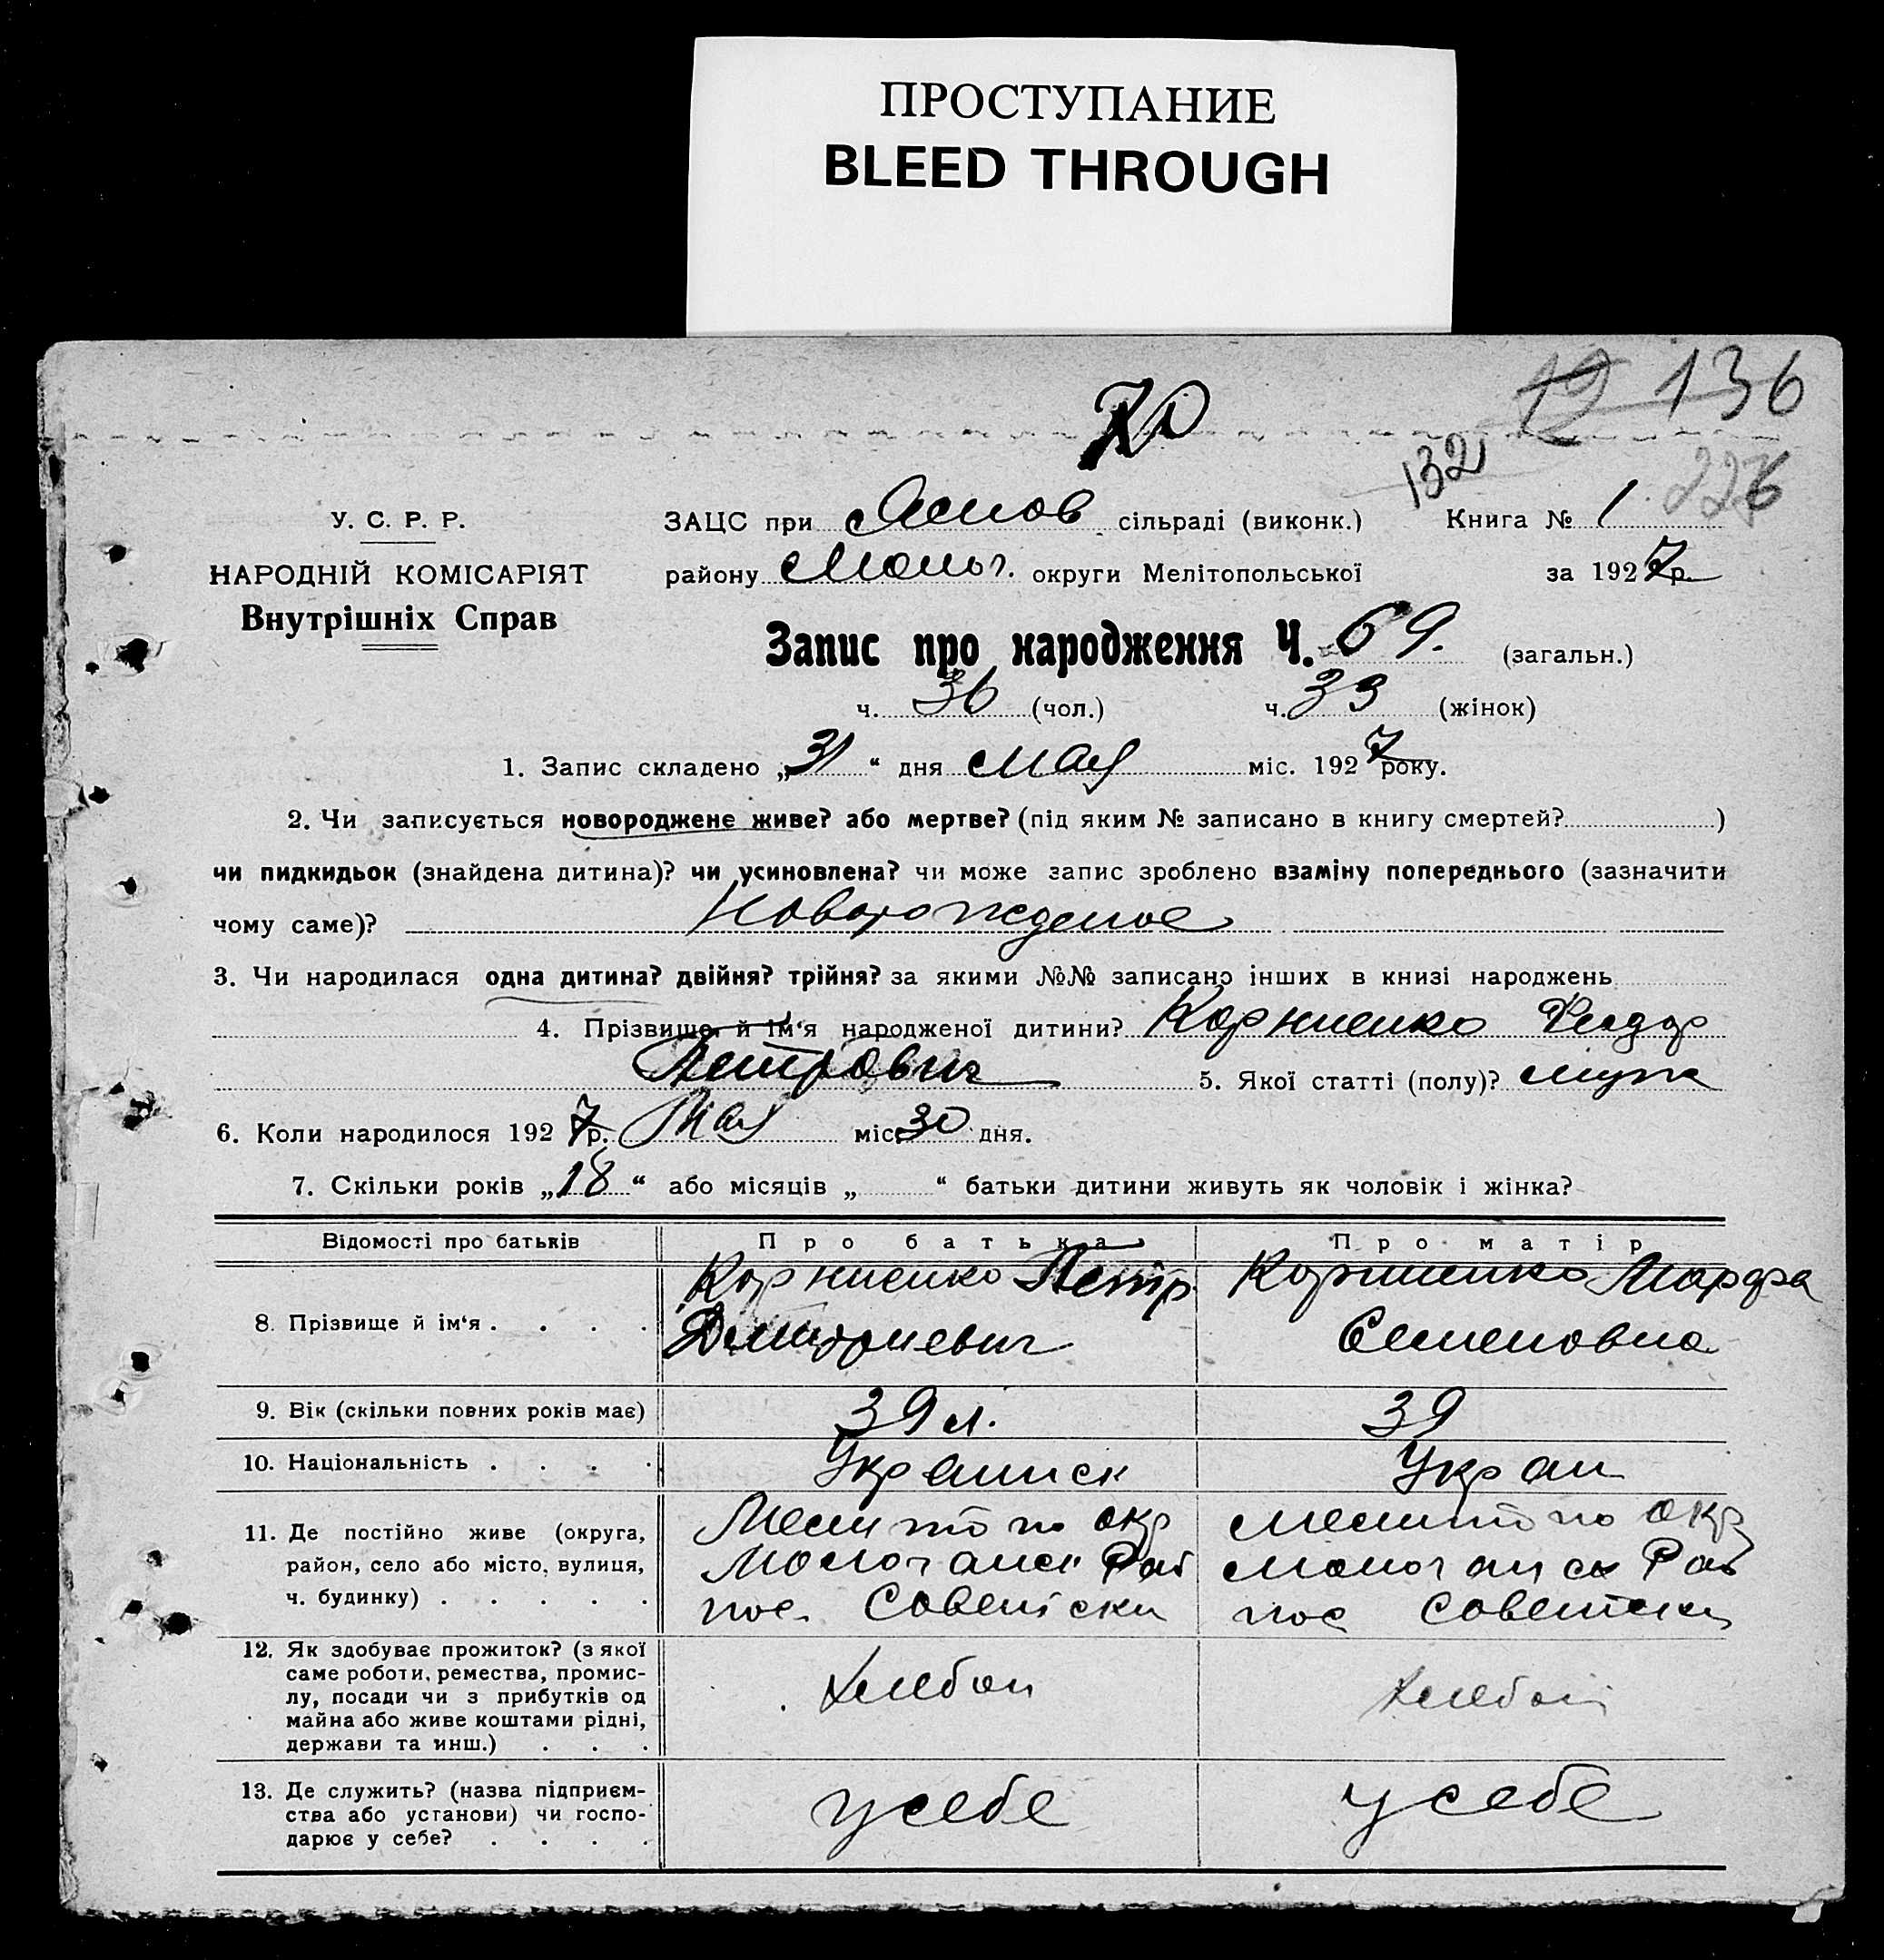 ПРОСТУПАНИЕ
BLEED THROUGH
12 136
132
226
У. С. Р. Р.
НАРОДНІЙ КОМІСАРІЯТ
Внутрішніх Справ
ЗАЦС при Ясиов сільраді (виконк.) Книга № 1
району Молоч. округи Мелітопольської за 1927 р.
Запис про народження Ч. 69. (загальн.)
ч. 36 (чол.) ч. 33 (жінок)
1. Запис складено „31“ дня мая міс. 1927 року.
2. Чи записується новороджене живе? або мертве? (під яким № записано в книгу смертей? )
чи пидкидьок (знайдена дитина)? чи усиновлена? чи може запис зроблено взаміну попереднього (зазначити
чому саме)? Новорожденое
3. Чи народилася одна дитина? двійня? трійня? за якими №№ записано інших в книзі народжень
4. Прізвище й ім‘я народженої дитини? Корниенко Федор
Петрович 5. Якої статті (полу)? муж
6. Коли народилося 1927 р. Мая міс. 30 дня.
7. Скільки років „18“ або місяців „ “ батьки дитини живуть як чоловік і жінка?
Відомості про батьків Про батька Про матір
8. Прізвище й ім‘я . . . . Корниенко Петр Корниенко Марфа
Дмитриевич Семеновна
9. Вік (скільки повних років має) 39 л. 39
10. Національність . . . . Украинск Украи
11. Де постійно живе (округа, Мелитопо окр Мелитопо окр
район, село або місто, вулиця, Молочанск Рай Молочанск Рай
ч. будинку) . . . . . пос. Советски пос Советски
12. Як здобуває прожиток? (з якої
саме роботи, ремества, промис-
лу, посади чи з прибутків од Хлебоп Хлебоп
майна або живе коштами рідні,
держави та инш.) . . .
13. Де служить? (назва підприєм-
ства або установи) чи госпо- у себе у себе
дарює у себе? . . . .